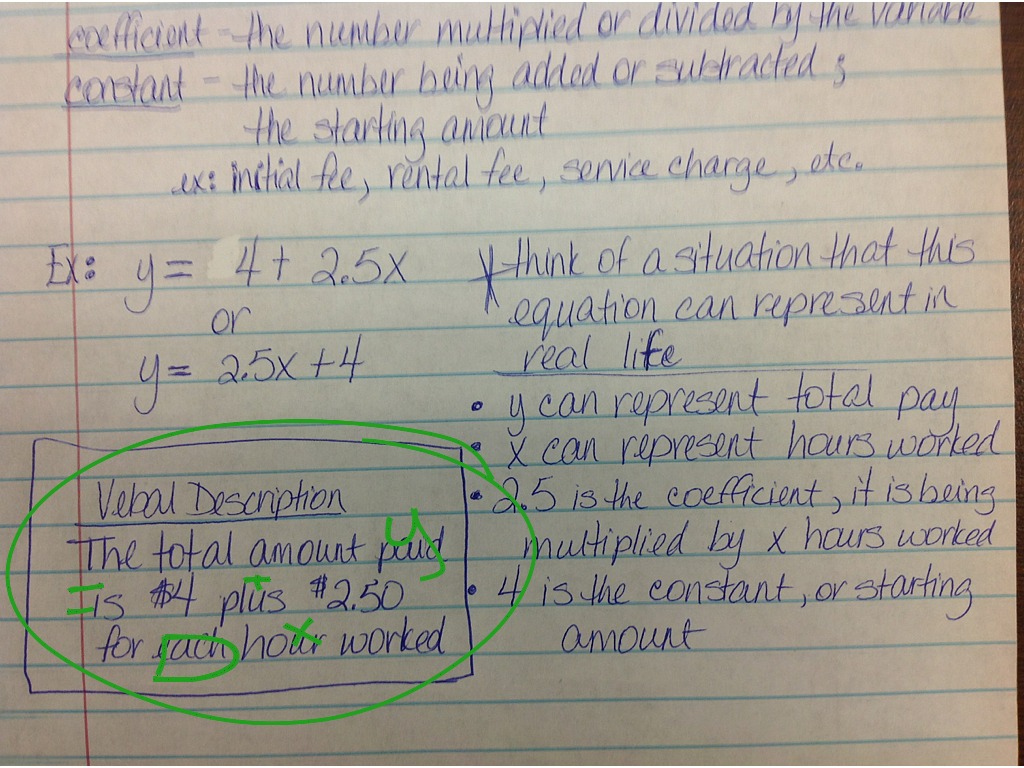 coefficient - the number multiplied or divided by the variable
constant - the number being added or subtracted ;
the starting amount
ex: initial fee, rental fee, service charge, etc.
Ex: y = 4 + 2.5x
or
y = 2.5x + 4
* think of a situation that this
equation can represent in
real life
• y can represent total pay
• x can represent hours worked
• 2.5 is the coefficient, it is being
multiplied by x hours worked
• 4 is the constant, or starting
amount
Vebal Description
The total amount paid
y
= is $4 plus $2.50
+
for each hour worked
x